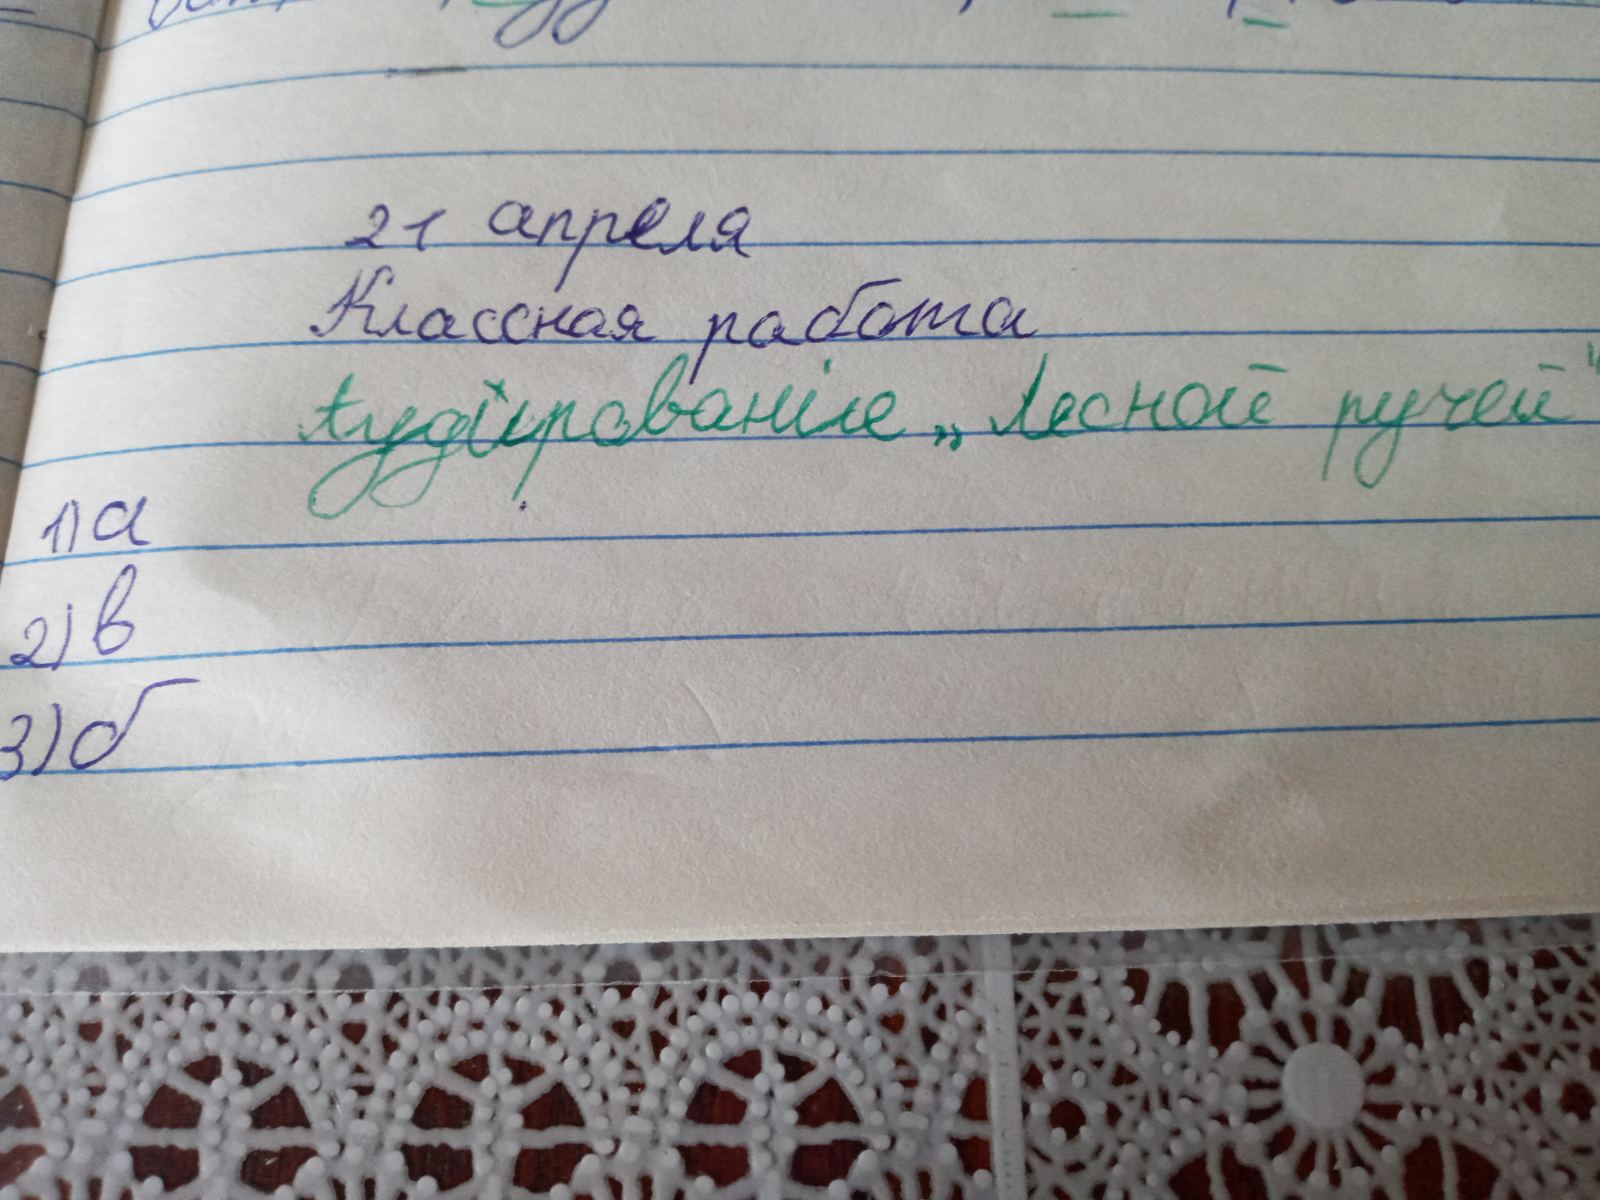 21 апреля
Классная работа
Аудирование „Лесной ручей"
1) а
2) в
3) б